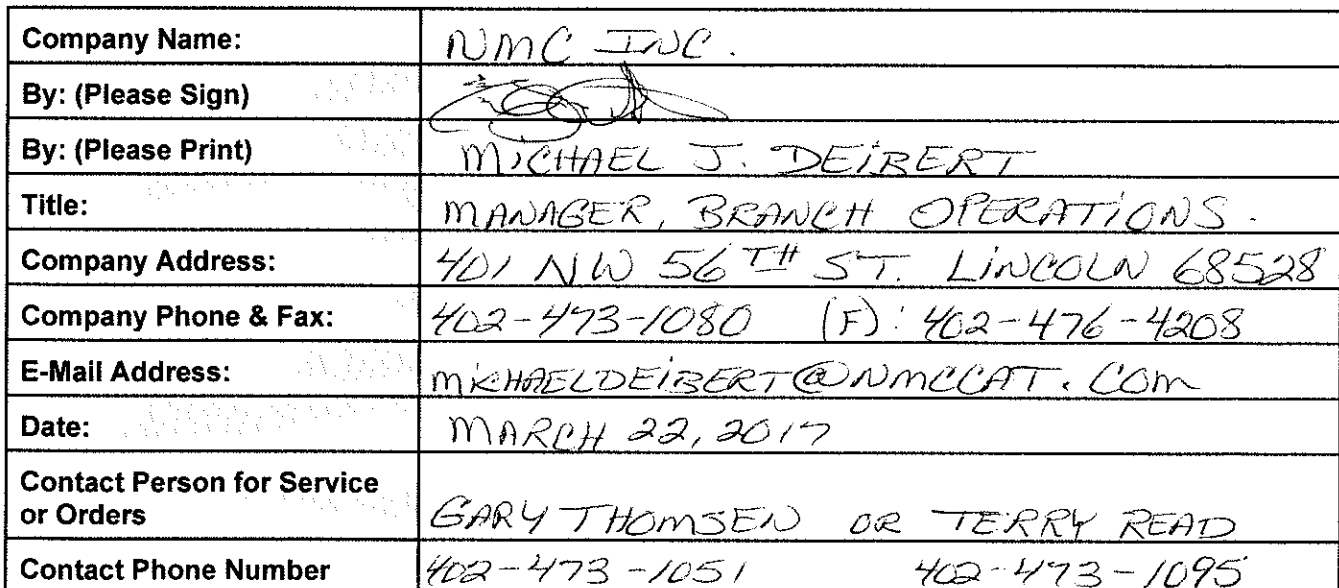 Company Name: NMC INC.
By: (Please Sign)
By: (Please Print) MICHAEL J. DEIBERT
Title: MANAGER, BRANCH OPERATIONS.
Company Address: 401 NW 56TH ST. LINCOLN 68528
Company Phone & Fax: 402-473-1080 (F): 402-476-4208
E-Mail Address: MICHAELDEIBERT@NMCCAT.COM
Date: MARCH 22, 2017
Contact Person for Service
or Orders GARY THOMSEN OR TERRY READ
Contact Phone Number 402-473-1051 402-473-1095